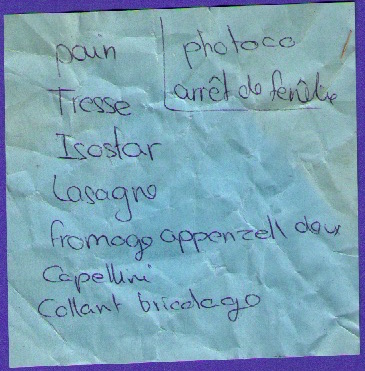 pain
Tresse
Isostar
Lasagne
fromage appenzell doux
Capellini
Collant bricolage
photoco
arrêt de fenêtre